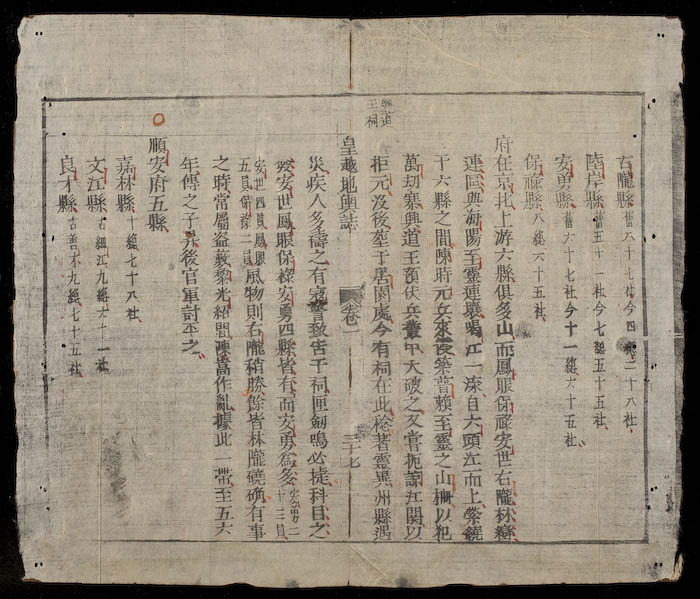 右隴縣舊六十七社今四總二十八社
陸岸縣舊五十一社今七總五十五社
安勇縣舊六十七社今十一總六十五社
保祿縣八總六十五社
府在京北上游六縣俱多山而鳳眼保祿安世右隴林巒
連區與海陽至靈連襄陽江一派自六頭江而上縈繞
于六縣之間陳時元兵來侵築營賴至靈之山柵以犯
萬劫寨興道王預伏兵叢中大破之又嘗扼諒江關以
拒元沒後塟于居園處今有祠在此極著靈異州縣遇
興道王祠
皇越地輿誌
卷一
三十七
災疾人多禱之有寇警致害于祠匣劍鳴必捷科目之
安世鳳眼保祿安勇四縣皆有而安勇爲多安勇二十三員
安世四員鳳眼五員保祿二員風物則右隴稍勝餘皆林隴磽确有事
之時當屬盜藪黎光紹間陳暠作亂據此一帶至五六
年傳之子昇後官軍討平之
順安府五縣
嘉林縣十總七十八社
文江縣古細江九總六十一社
良才縣古善才九總七十五社